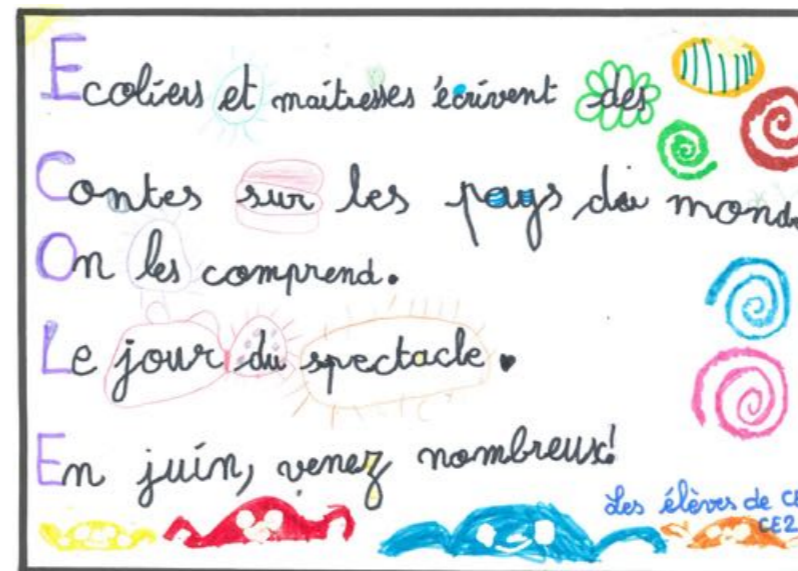 Ecoliers et maitresses écrivent des
Contes sur les pays du mond
On les comprend.
Le jour du spectacle.
En juin, venez nombreux!
Les élèves de CE
CE2